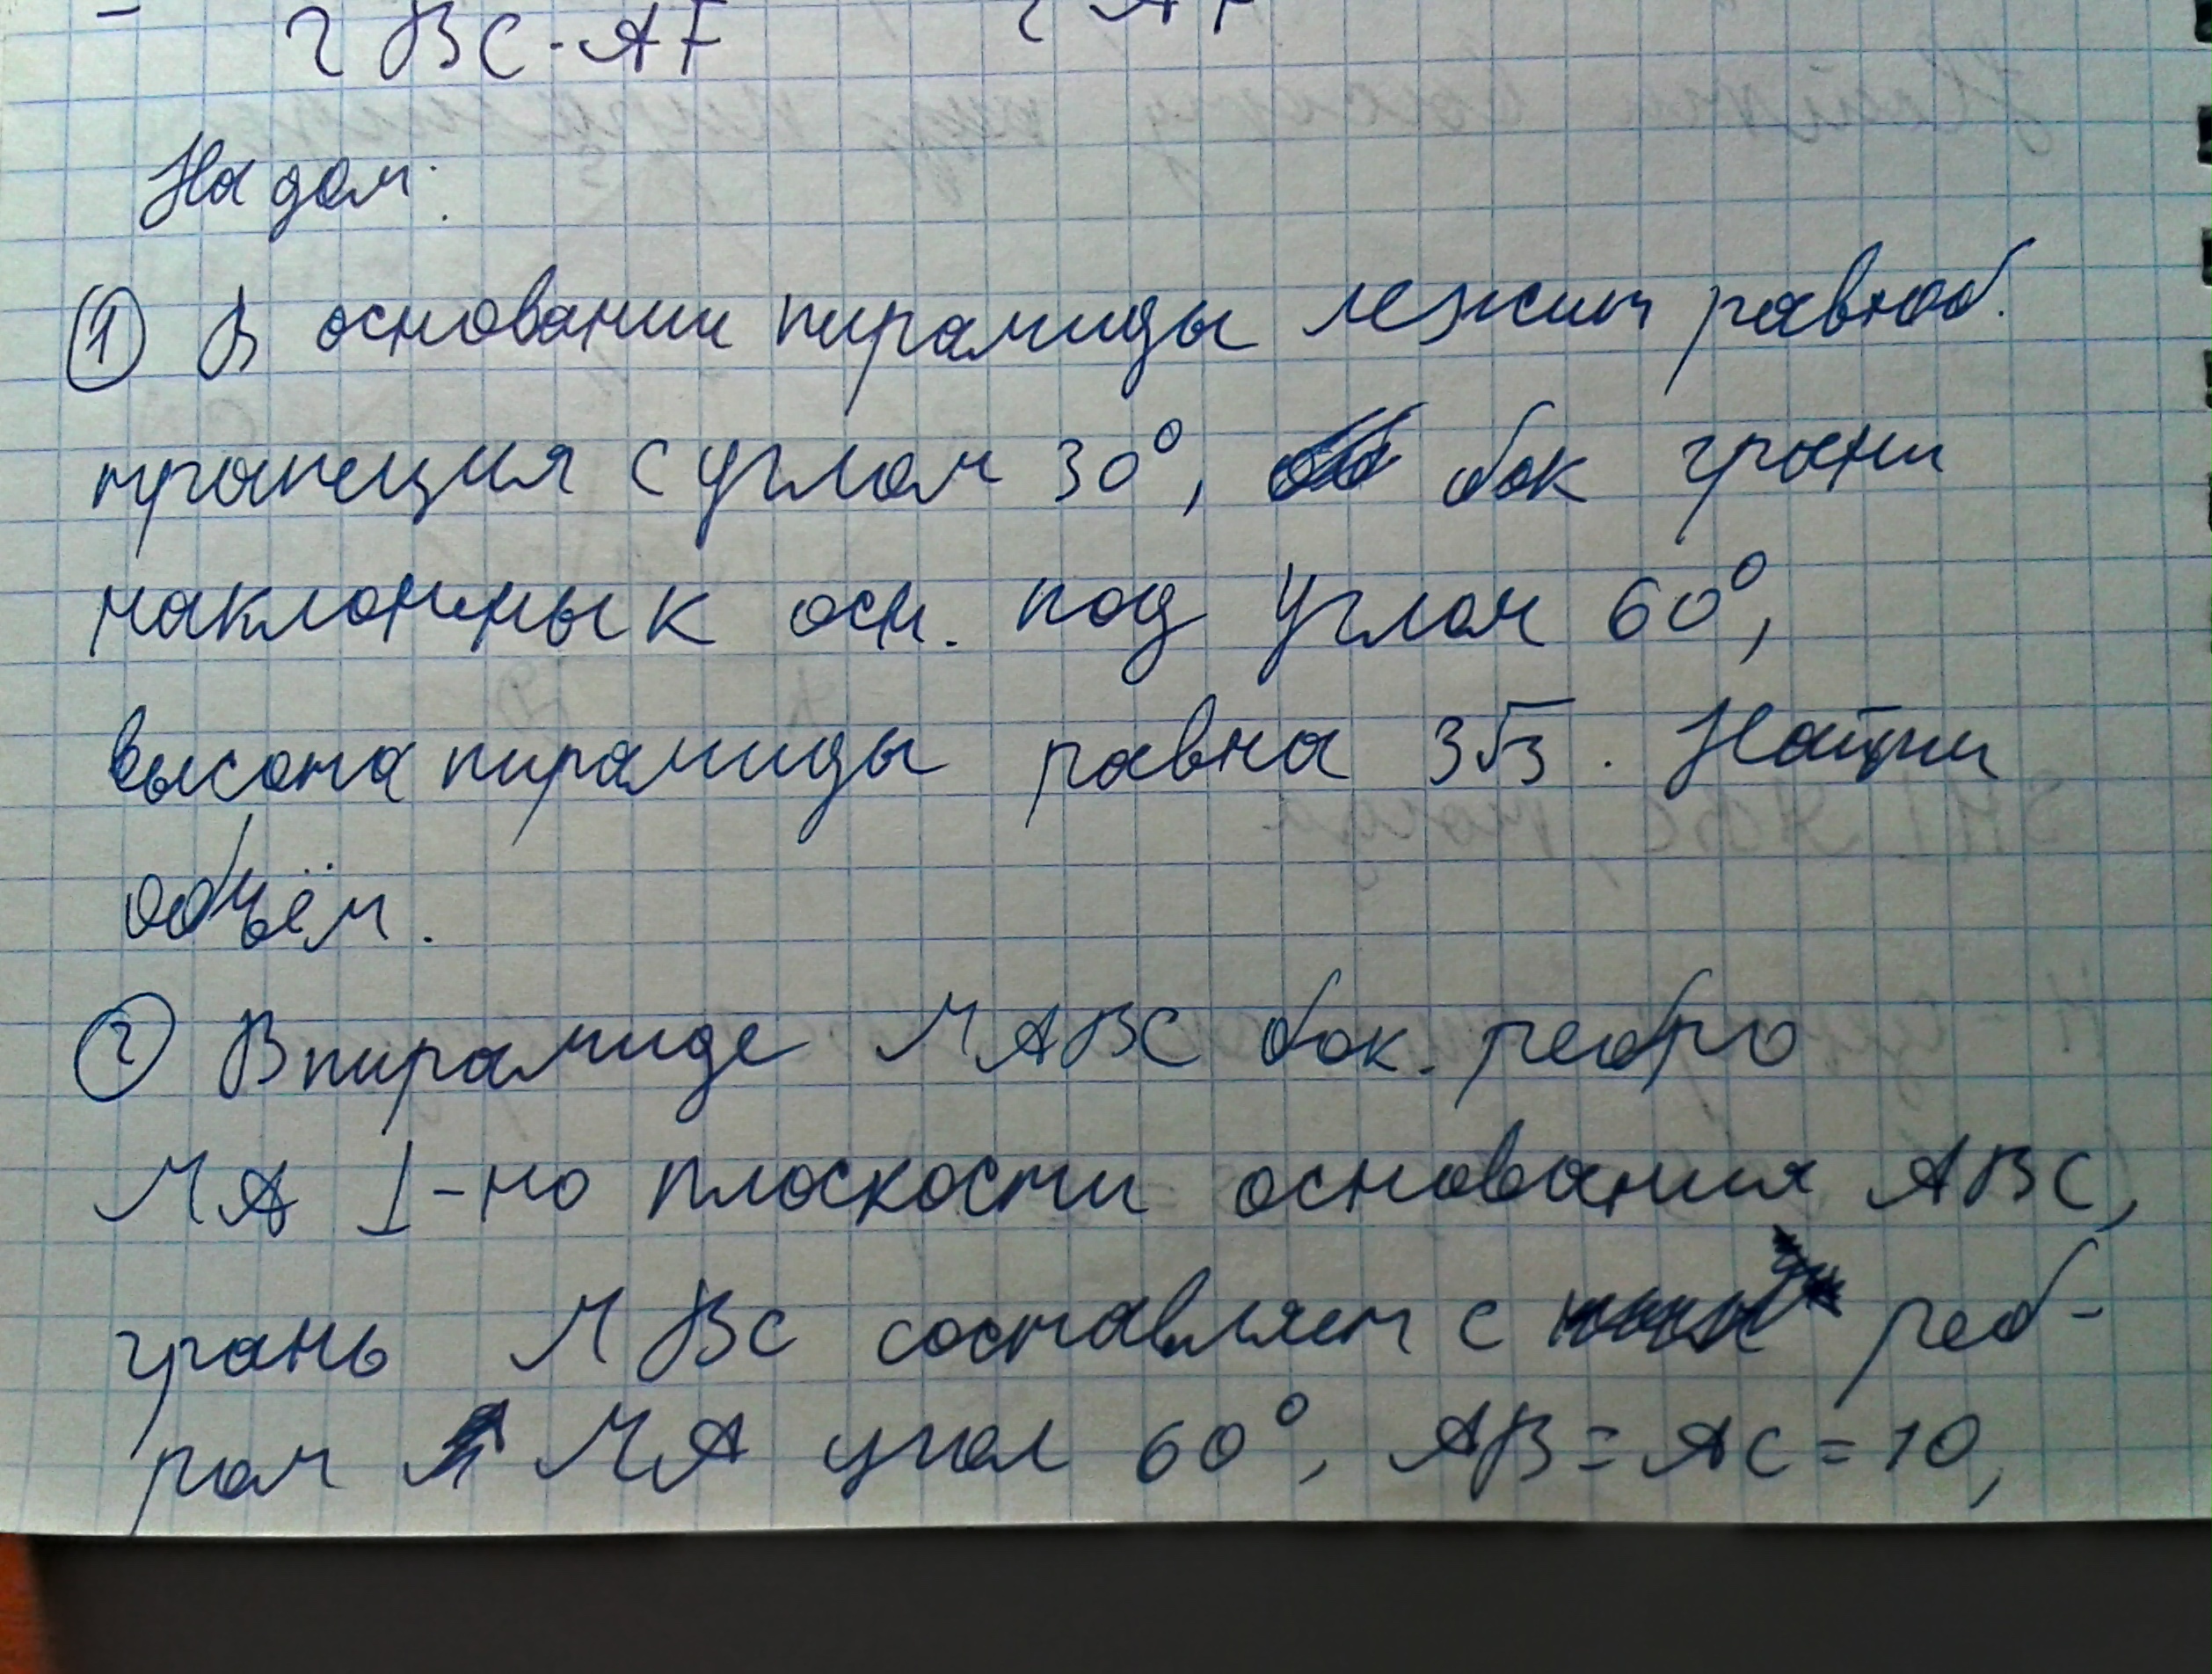 2 BC·AF
На дом:
① В основании пирамиды лежит равноб.
трапеция с углом 30°, бок грани
наклонены к осн. под углом 60°,
высота пирамиды равна 3√3. Найти
объём.
② В пирамиде MABC бок. ребро
MA ⊥-но плоскости основания ABC,
грань MBC составляет с реб-
ром MA угол 60°, AB = AC = 10,